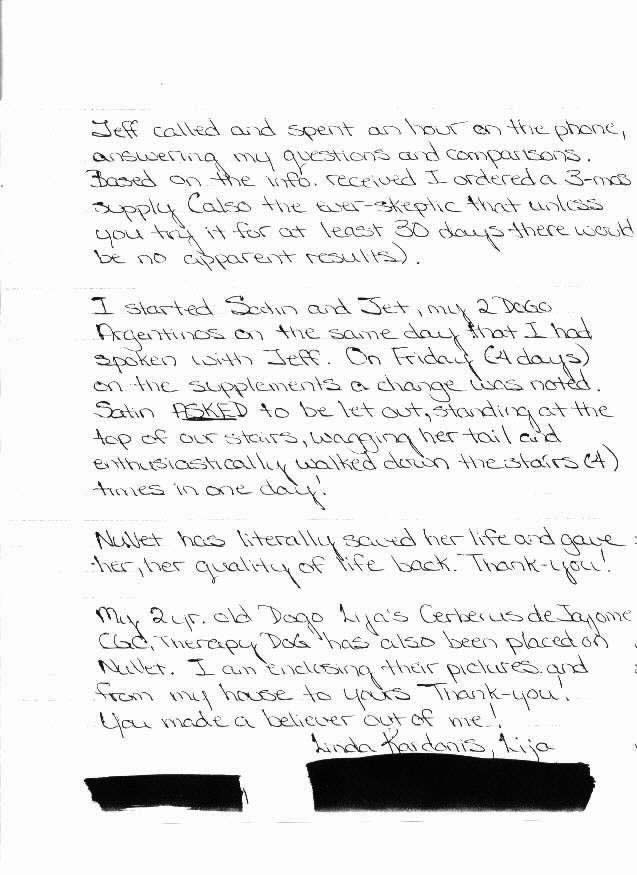 Jeff called and spent an hour on the phone,
answering my questions and comparisons.
Based on the info. received I ordered a 3-mos
supply (also the ever-skeptic that unless
you try it for at least 30 days there would
be no apparent results).
I started Satin and Jet, my 2 Dogo
Argentinos on the same day that I had
spoken with Jeff. On Friday (4 days)
on the supplements a change was noted.
Satin ASKED to be let out, standing at the
top of our stairs, wagging her tail and
enthusiastically walked down the stairs (4)
times in one day!
NuVet has literally saved her life and gave
her, her quality of life back. Thank-you!
My 2 yr. old Dogo Lija's Cerberus de Jayome
CGC, Therapy Dog has also been placed on
NuVet. I am enclosing their pictures and
from my house to yours Thank-you!
You made a believer out of me!
Linda Kardonis, Lija